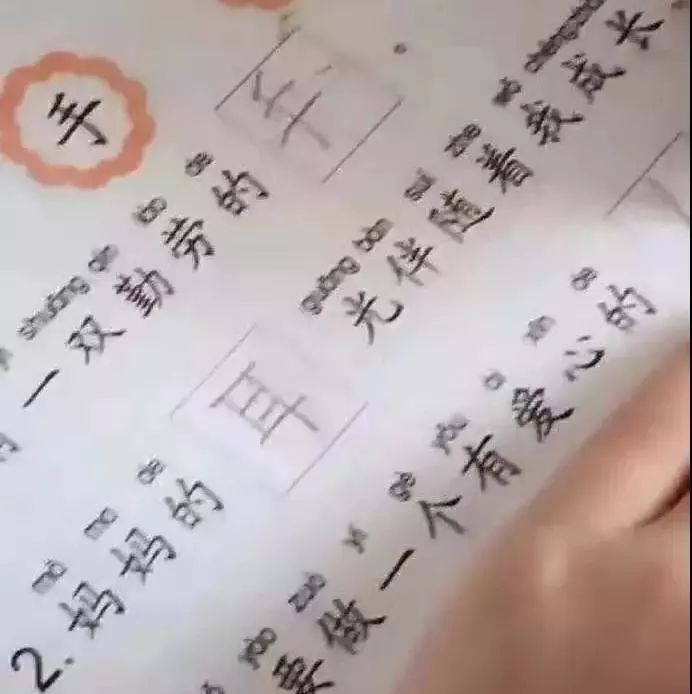 手
shuāng qín láo de
一双勤劳的手
mā ma de guāng bàn suí zhe wǒ chéng zhǎng
2.妈妈的耳光伴随着我成长
yào zuò yí gè yǒu ài xīn de
要做一个有爱心的